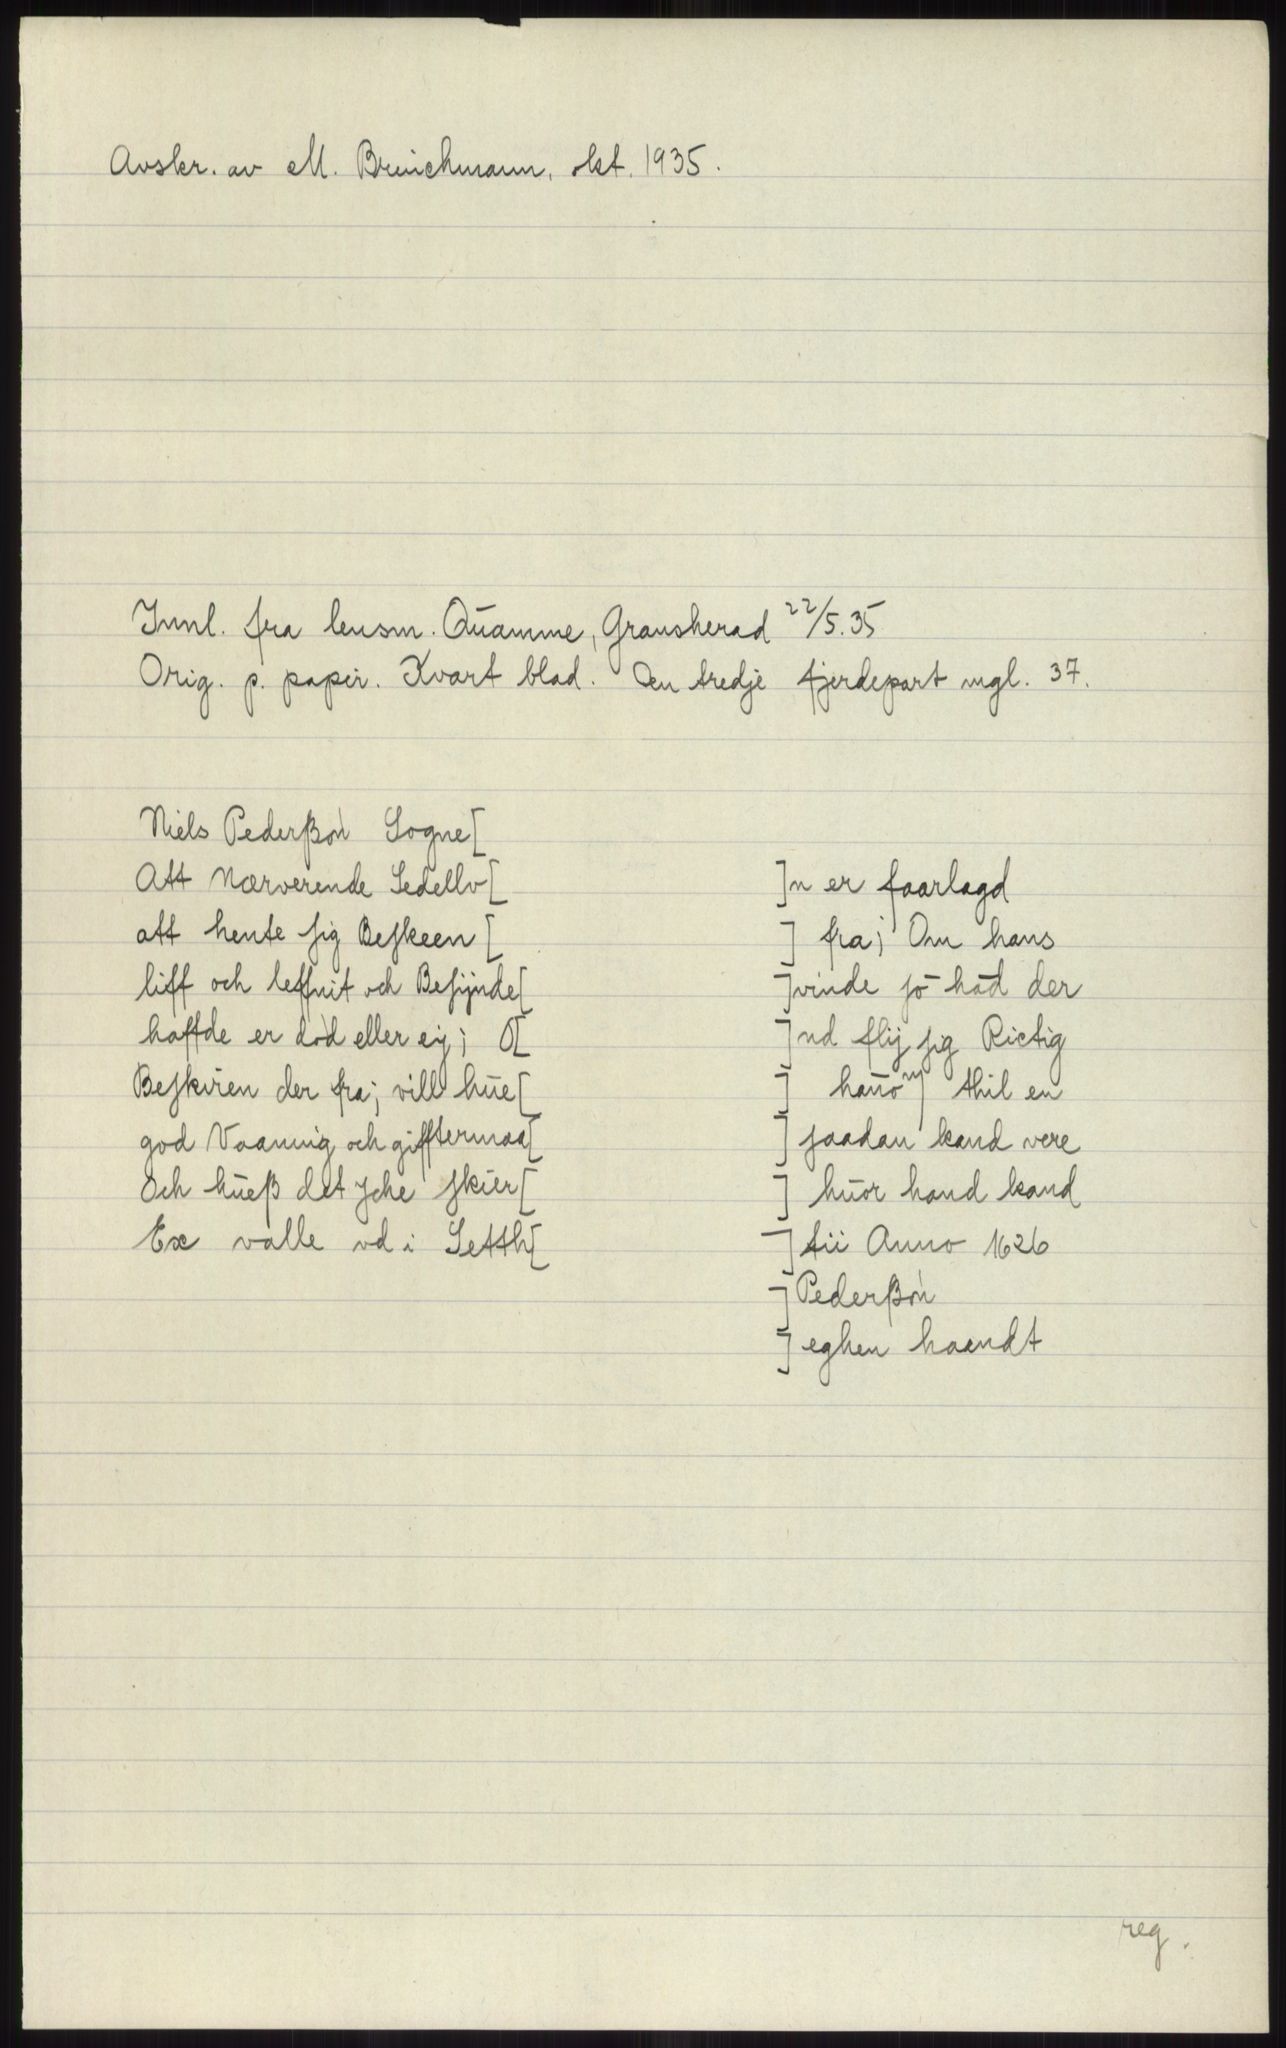 Avskr. av M. Brinchmann, okt. 1935.
Innl. fra lensm. Quamme, Gransherad 22/5.35
Orig. p. papir. Kvart blad. Den tredje fjerdepart mgl. 37.
Niels Pederßøn Sogne[
Att Nærverende Sedellv[ ]n er faarlagd
att hente sig Beskeen [ ] fra; Om hans
liff och leffnit och Besijnde[ ]vinde so had der
haffde er død eller eij; O[ ]nd flij sig Rictig
Beskvien der fra; vill hue[ ] hano thil en
god Vaaning och gifftermaa[ ] saadan kand vere
Och hueß det Iche skier[ ] huor hand kand
Ex valle vd i Setth[ ] tii Anno 1626
] Pederßøn
] eghen haandt
reg.